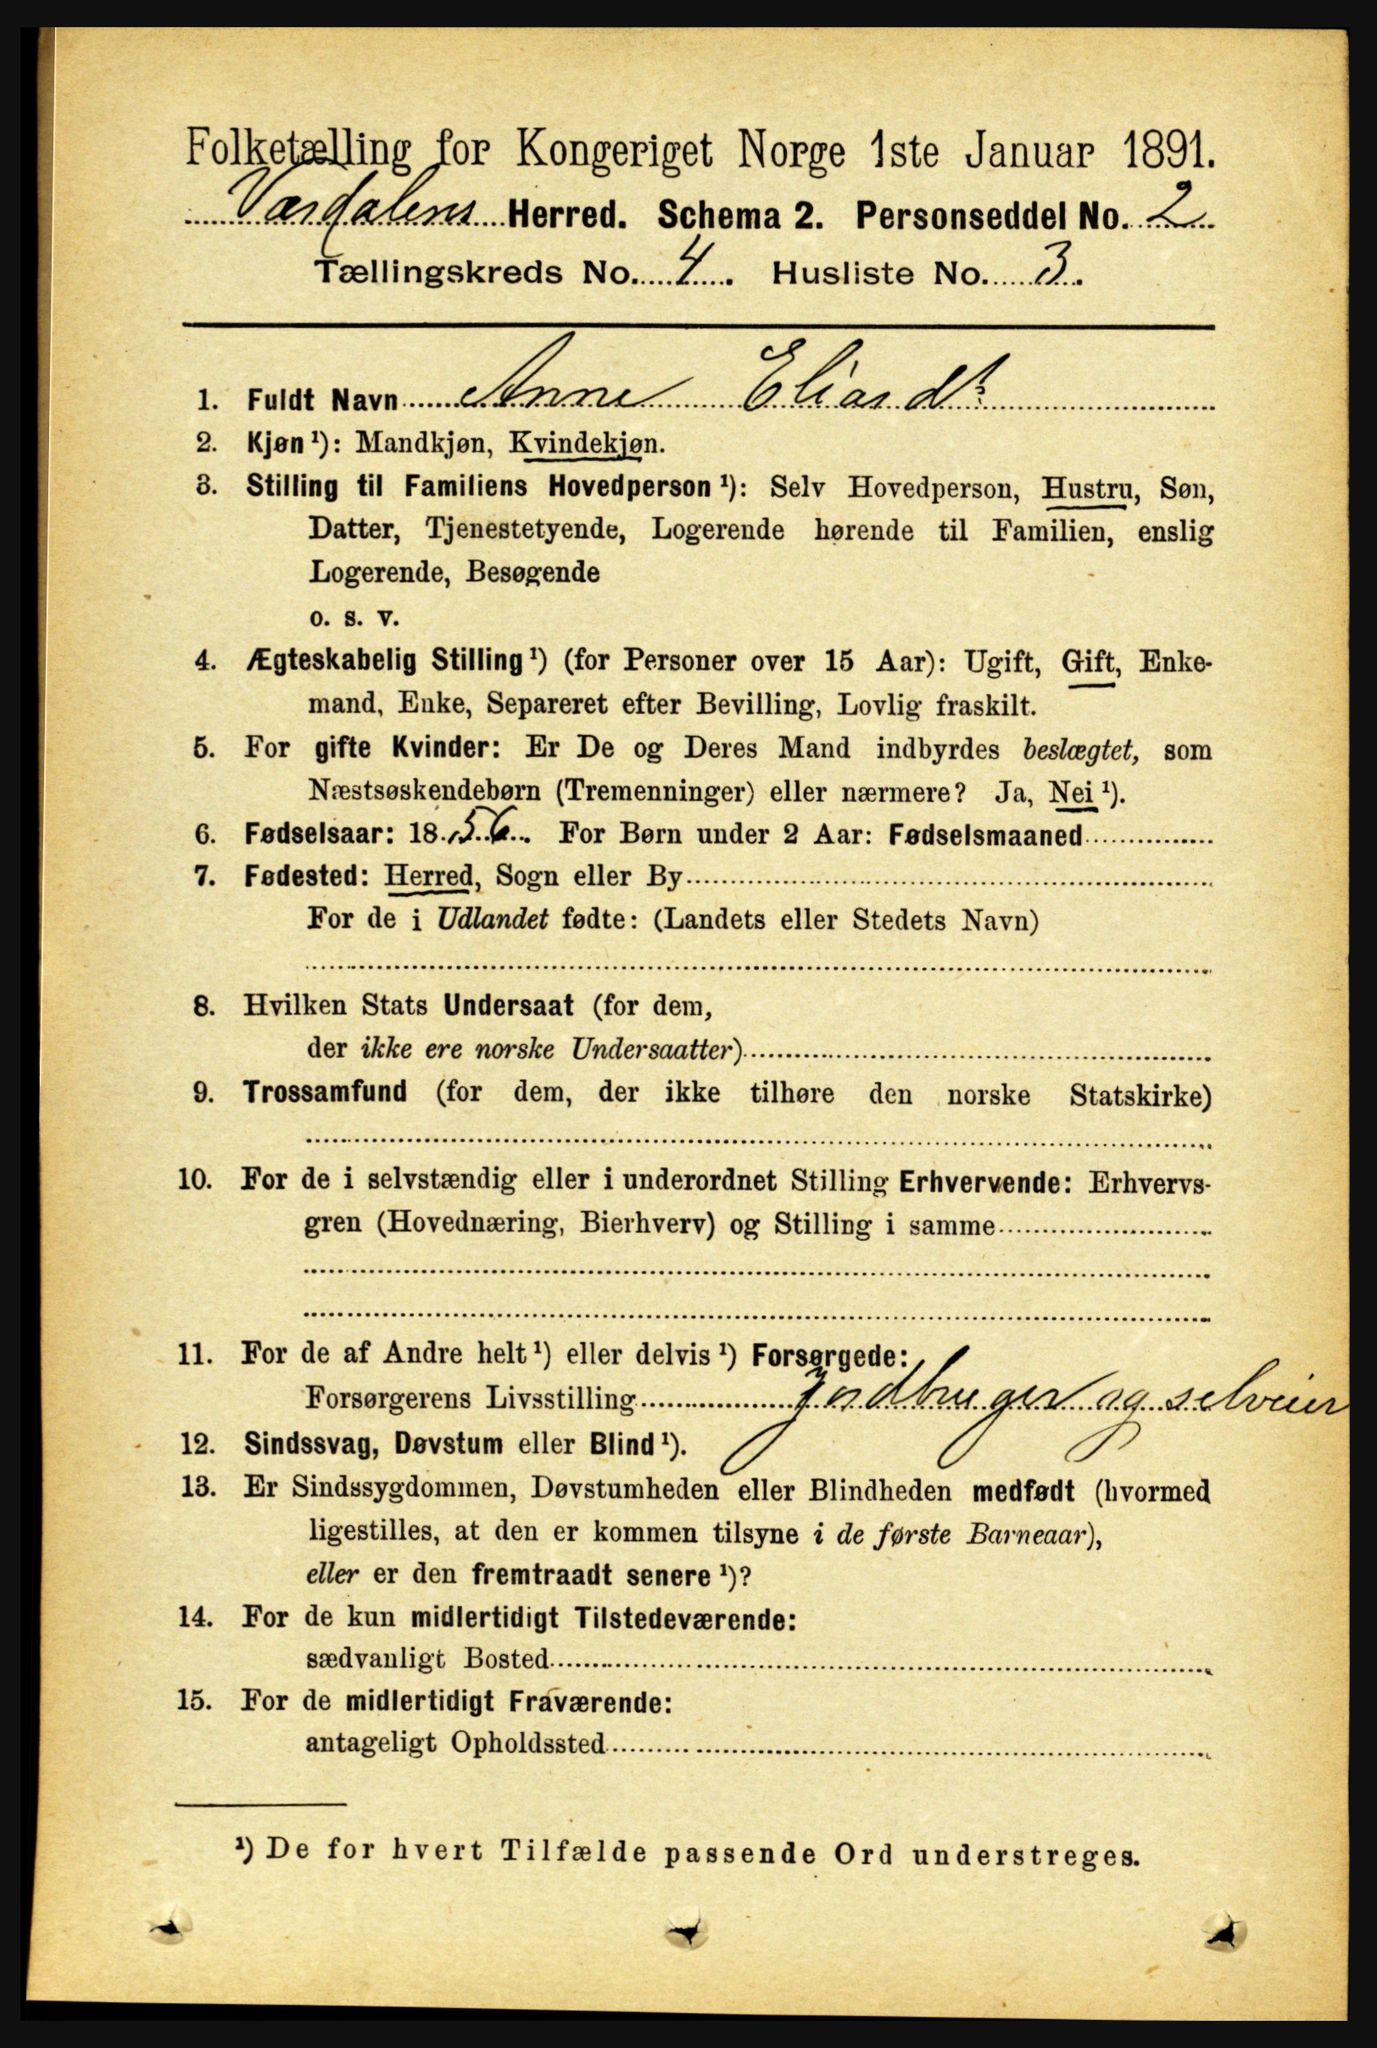 Folketælling for Kongeriget Norge 1ste Januar 1891.
Værdalens Herred. Schema 2. Personseddel No. 2
Tællingskreds No. 4. Husliste No. 3.
1. Fuldt Navn Anne Eliasdr
2. Kjøn ¹): Mandkjøn, Kvindekjøn.
3. Stilling til Familiens Hovedperson ¹): Selv Hovedperson, Hustru, Søn,
Datter, Tjenestetyende, Logerende hørende til Familien, enslig
Logerende, Besøgende
o. s. v.
4. Ægteskabelig Stilling ¹) (for Personer over 15 Aar): Ugift, Gift, Enke-
mand, Enke, Separeret efter Bevilling, Lovlig fraskilt.
5. For gifte Kvinder: Er De og Deres Mand indbyrdes beslægtet, som
Næstsøskendebørn (Tremenninger) eller nærmere? Ja, Nei ¹).
6. Fødselsaar: 1856. For Børn under 2 Aar: Fødselsmaaned
7. Fødested: Herred, Sogn eller By
For de i Udlandet fødte: (Landets eller Stedets Navn)
8. Hvilken Stats Undersaat (for dem,
der ikke ere norske Undersaatter)
9. Trossamfund (for dem, der ikke tilhøre den norske Statskirke)
10. For de i selvstændig eller i underordnet Stilling Erhvervende: Erhvervs-
gren (Hovednæring, Bierhverv) og Stilling i samme
11. For de af Andre helt ¹) eller delvis ¹) Forsørgede:
Forsørgerens Livsstilling Jordbruger og selveier
12. Sindssvag, Døvstum eller Blind ¹).
13. Er Sindssygdommen, Døvstumheden eller Blindheden medfødt (hvormed
ligestilles, at den er kommen tilsyne i de første Barneaar),
eller er den fremtraadt senere ¹)?
14. For de kun midlertidigt Tilstedeværende:
sædvanligt Bosted
15. For de midlertidigt Fraværende:
antageligt Opholdssted
¹) De for hvert Tilfælde passende Ord understreges.